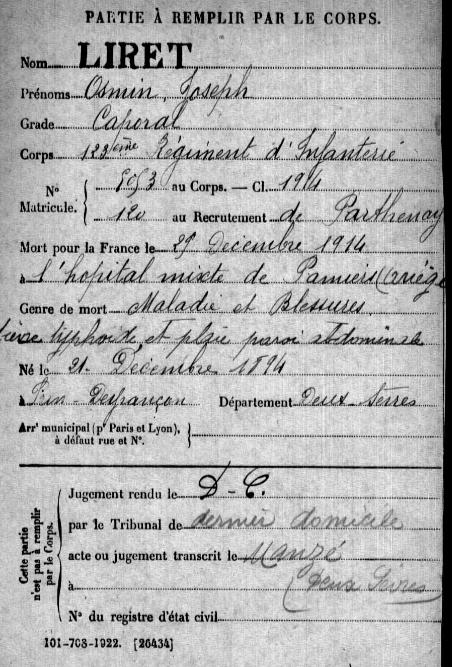 PARTIE À REMPLIR PAR LE CORPS.
Nom LIRET
Prénoms Osmin, Joseph
Grade Caporal
Corps 123ème Régiment d'Infanterie
N° Matricule. au Corps. — Cl. 1914
120 au Recrutement de Parthenay
Mort pour la France le 29 Décembre 1914
à l'hopital mixte de Pamiers (Ariège
Genre de mort Maladie et Blessures
fièvre typhoïde et plaie paroi abdominale
Né le 21 Décembre 1894
à Département Deux-Sèvres
Arrt municipal (pr Paris et Lyon),
à défaut rue et N°.
Cette partie n'est pas à remplir par le Corps.
Jugement rendu le D-C.
par le Tribunal de dernier domicile
acte ou jugement transcrit le Mauzé
à (Deux Sèvres)
N° du registre d'état civil
101-708-1922. [26434]